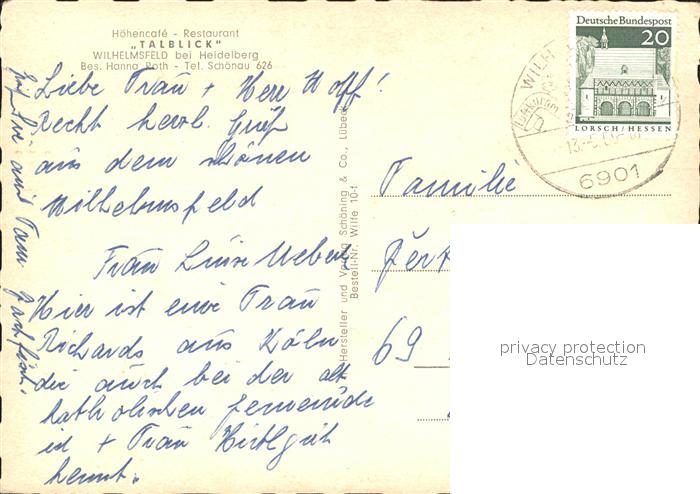 Höhencafé - Restaurant
„TALBLICK"
WILHELMSFELD bei Heidelberg
Bes. Hanna Roth - Tel. Schönau 626
Liebe Frau + Herr Hoff!
Recht herzl. Gruß
aus dem schönen
Wilhelmsfeld
Frau Luise Weber
Hier ist eine Frau
Richards aus Köln
die auch bei der alt
katholischen Gemeinde
ist + Frau
kennt.
Hersteller und Verlag Schöning & Co., Lübeck
Bestell-Nr. Wilfe 10-f
Deutsche Bundespost
20
LORSCH/HESSEN
WILH
6901
Familie
69
privacy protection
Datenschutz